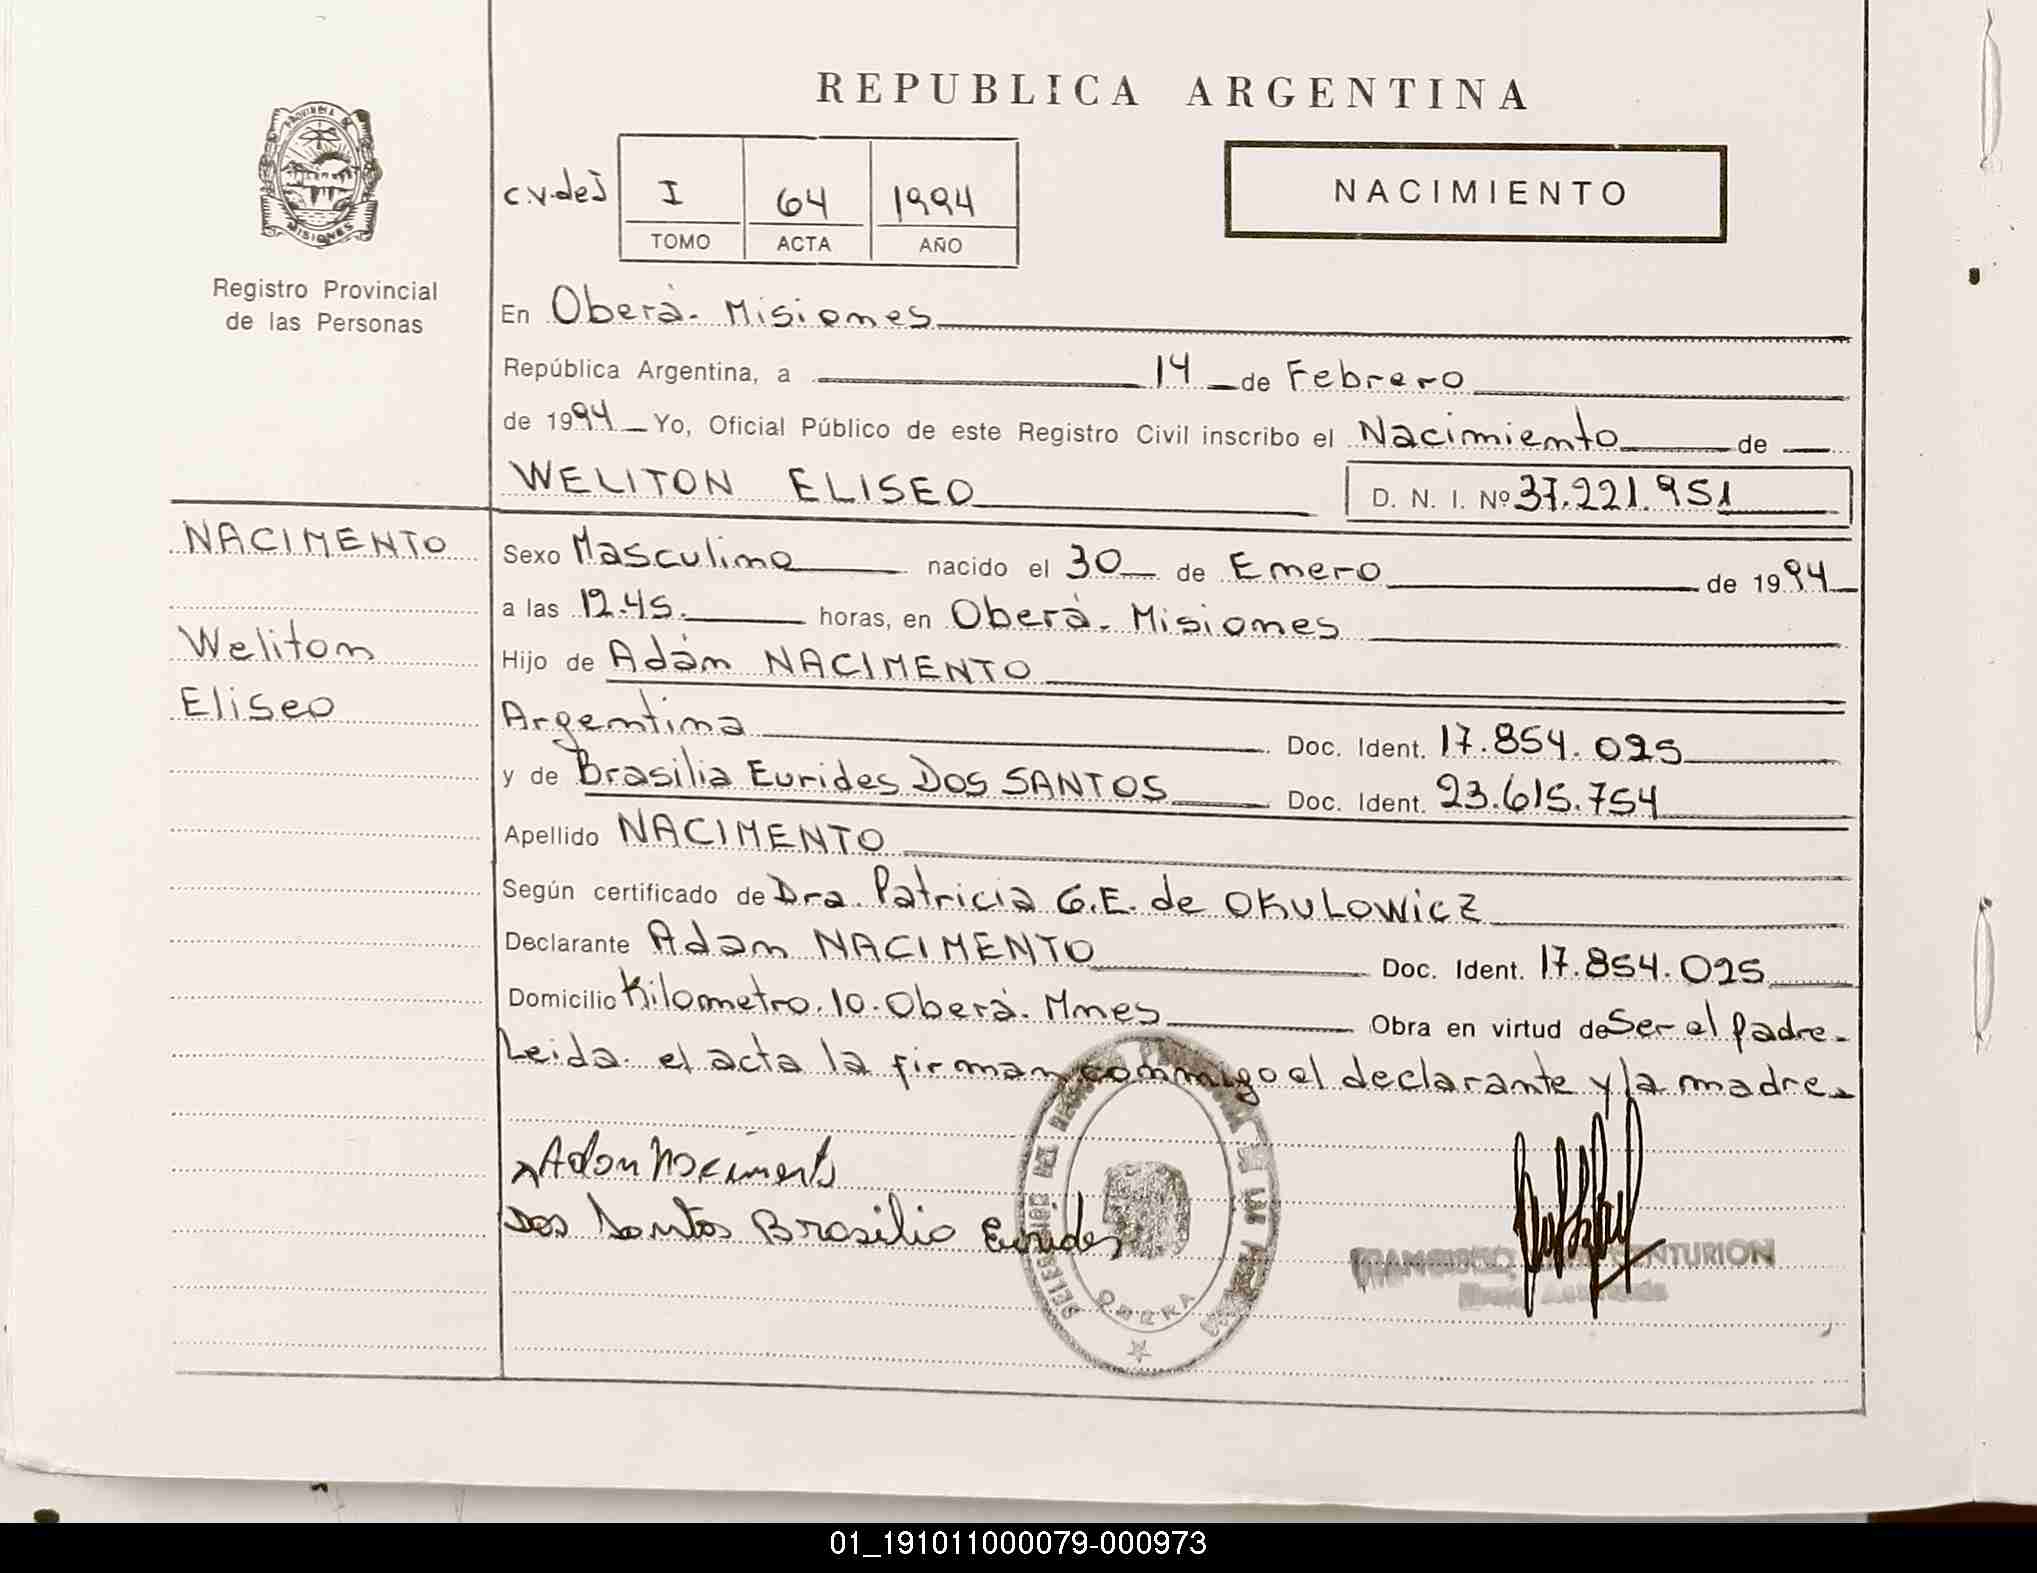 REPUBLICA ARGENTINA
PROVINCIA DE
MISIONES
Registro Provincial
de las Personas
c.v.deJ
I 64 1994
TOMO ACTA AÑO
NACIMIENTO
En Oberá. Misiones
República Argentina, a 14 de Febrero
de 1994 Yo, Oficial Público de este Registro Civil inscribo el Nacimiento de
WELITON ELISEO D. N. I. Nº 37.221.951
NACIMENTO
Weliton
Eliseo
Sexo Masculino nacido el 30 de Enero de 1994
a las 12.45. horas, en Oberá. Misiones
Hijo de Adán NACIMENTO
Argentina Doc. Ident. 17.854.025
y de Brasilia Eurides DOS SANTOS Doc. Ident. 23.615.754
Apellido NACIMENTO
Según certificado de Dra. Patricia G.E. de OKULOWICZ
Declarante Adan NACIMENTO Doc. Ident. 17.854.025
Domicilio Kilometro.10.Oberá. Mnes Obra en virtud de Ser el padre.
Leida el acta la firman conmigo el declarante y la madre.
Adan Naciment
Dos Santos Brasilio Eurides
OBERA
CENTURION
01_191011000079-000973